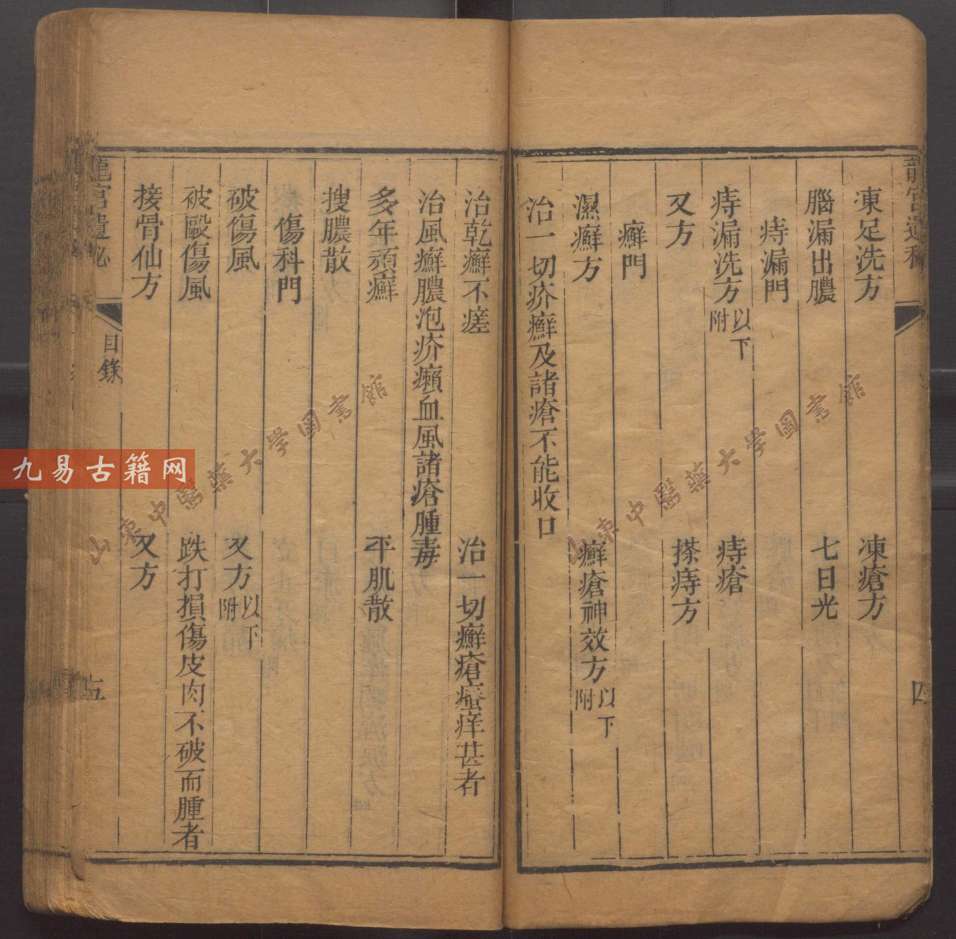 凍足洗方 凍瘡方
腦漏出膿 七日光
痔漏門
痔漏洗方 以下附 痔瘡
又方 搽痔方
癬門
濕癬方 癬瘡神效方 以下附
治一切疥癬及諸瘡不能收口
四
治乾癬不瘥 治一切癬瘡瘙痒甚者
治風癬膿泡疥癩血風諸瘡腫毒
多年頑癬 平肌散
搜膿散
傷科門
破傷風 又方 以下附
被毆傷風 跌打損傷皮肉不破而腫者
接骨仙方 又方
龍宮遺秘 目錄 五
九易古籍网
中醫藥大学圖書館
中醫藥大学圖書館